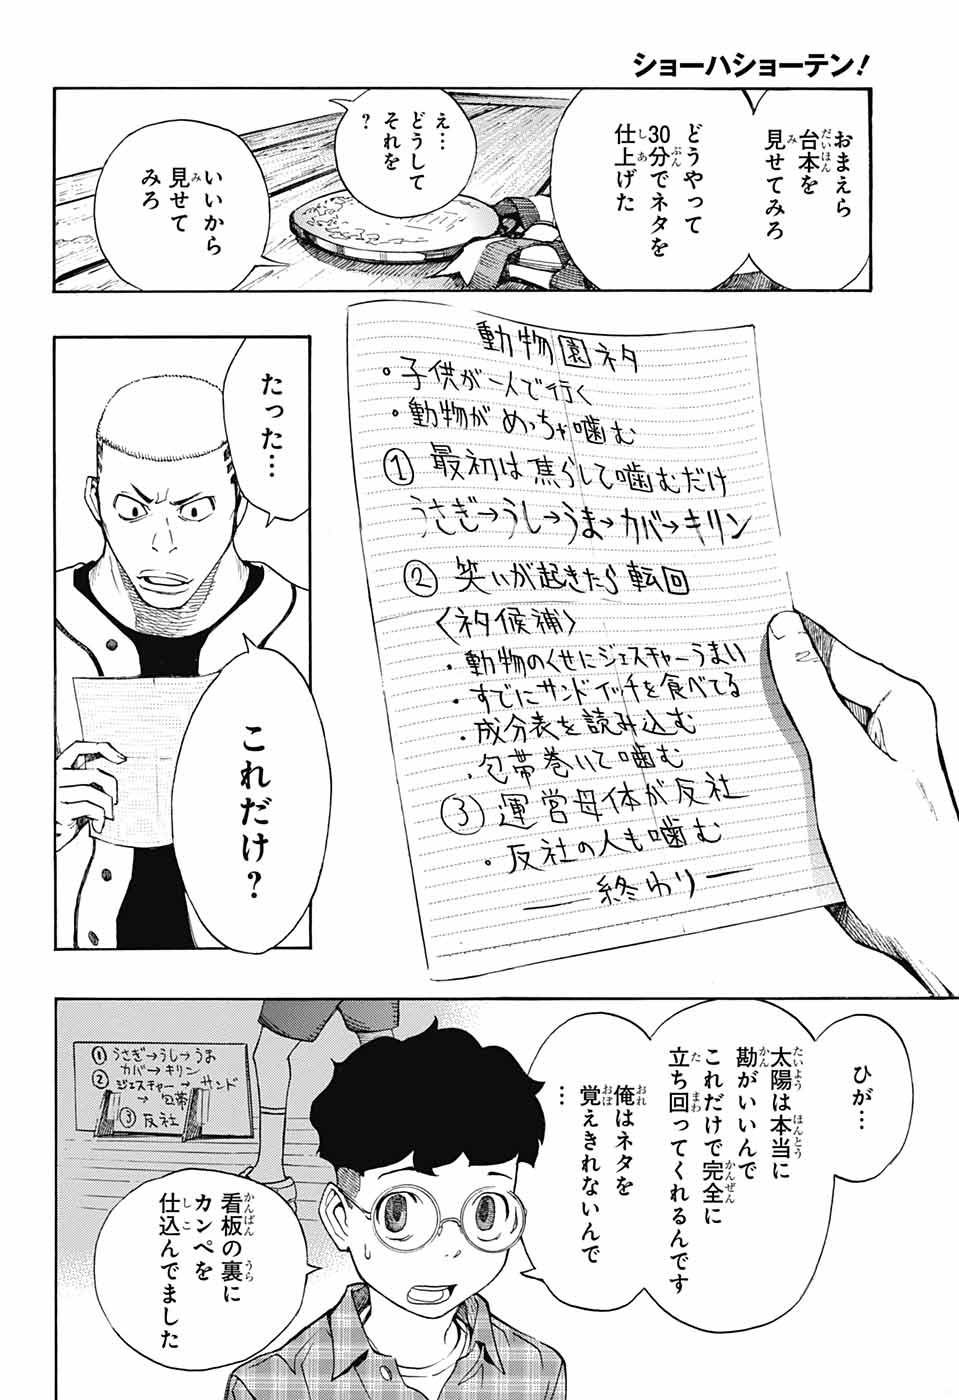 ショーハショーテン！
おまえら
台本を
見せてみろ
どうやって
30分でネタを
仕上げた
え…
どうして
それを
？
いいから
見せて
みろ
動物園ネタ
・子供が一人で行く
・動物がめっちゃ噛む
① 最初は焦らして噛むだけ
うさぎ→うし→うま→カバ→キリン
② 笑いが起きたら転回
〈ネタ候補〉
・動物のくせにジェスチャーうまい
・すでにサンドイッチを食べてる
・成分表を読み込む
・包帯巻いて噛む
③ 運営母体が反社
・反社の人も噛む
――終わり――
たった…
これだけ？
ひが…
太陽は本当に
勘がいいんで
これだけで完全に
立ち回ってくれるんです
俺はネタを
覚えきれないんで
…
看板の裏に
カンペを
仕込んでました
① うさぎ→うし→うま
カバ→キリン
② ジェスチャー→サンド
→包帯
③ 反社